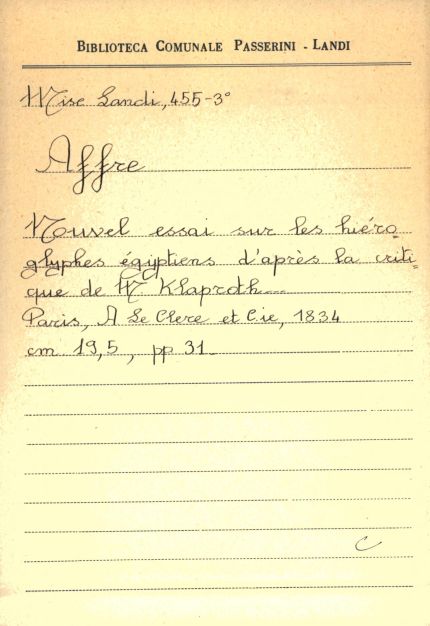 BIBLIOTECA COMUNALE PASSERINI - LANDI
Misc Landi, 455-3°
Affre
Nouvel essai sur les hiéro=
glyphes égiptiens d'après la criti=
que de M. Klaproth...
Paris, A Le Clere et Cie, 1834
cm 19,5, pp 31
C